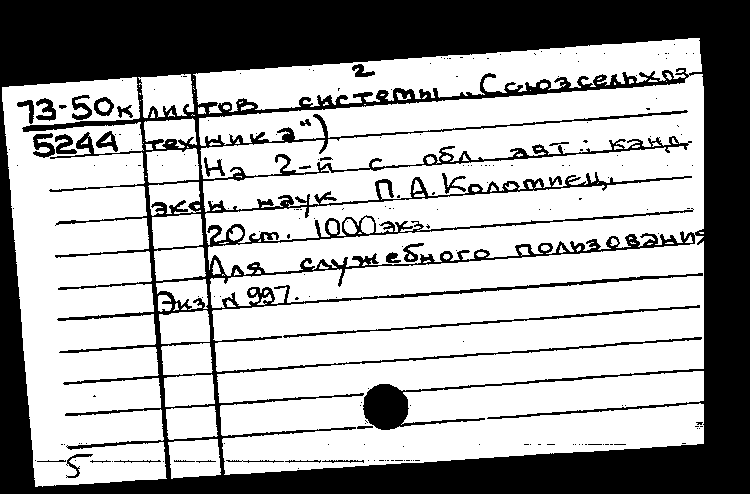 2
73-50к листов системы „Союзсельхоз-
5244 техника")
На 2-й с обл. авт.: канд.
экон. наук П.А. Коломиец.
20 см. 1000 экз.
Для служебного пользования
Экз. № 997.
5